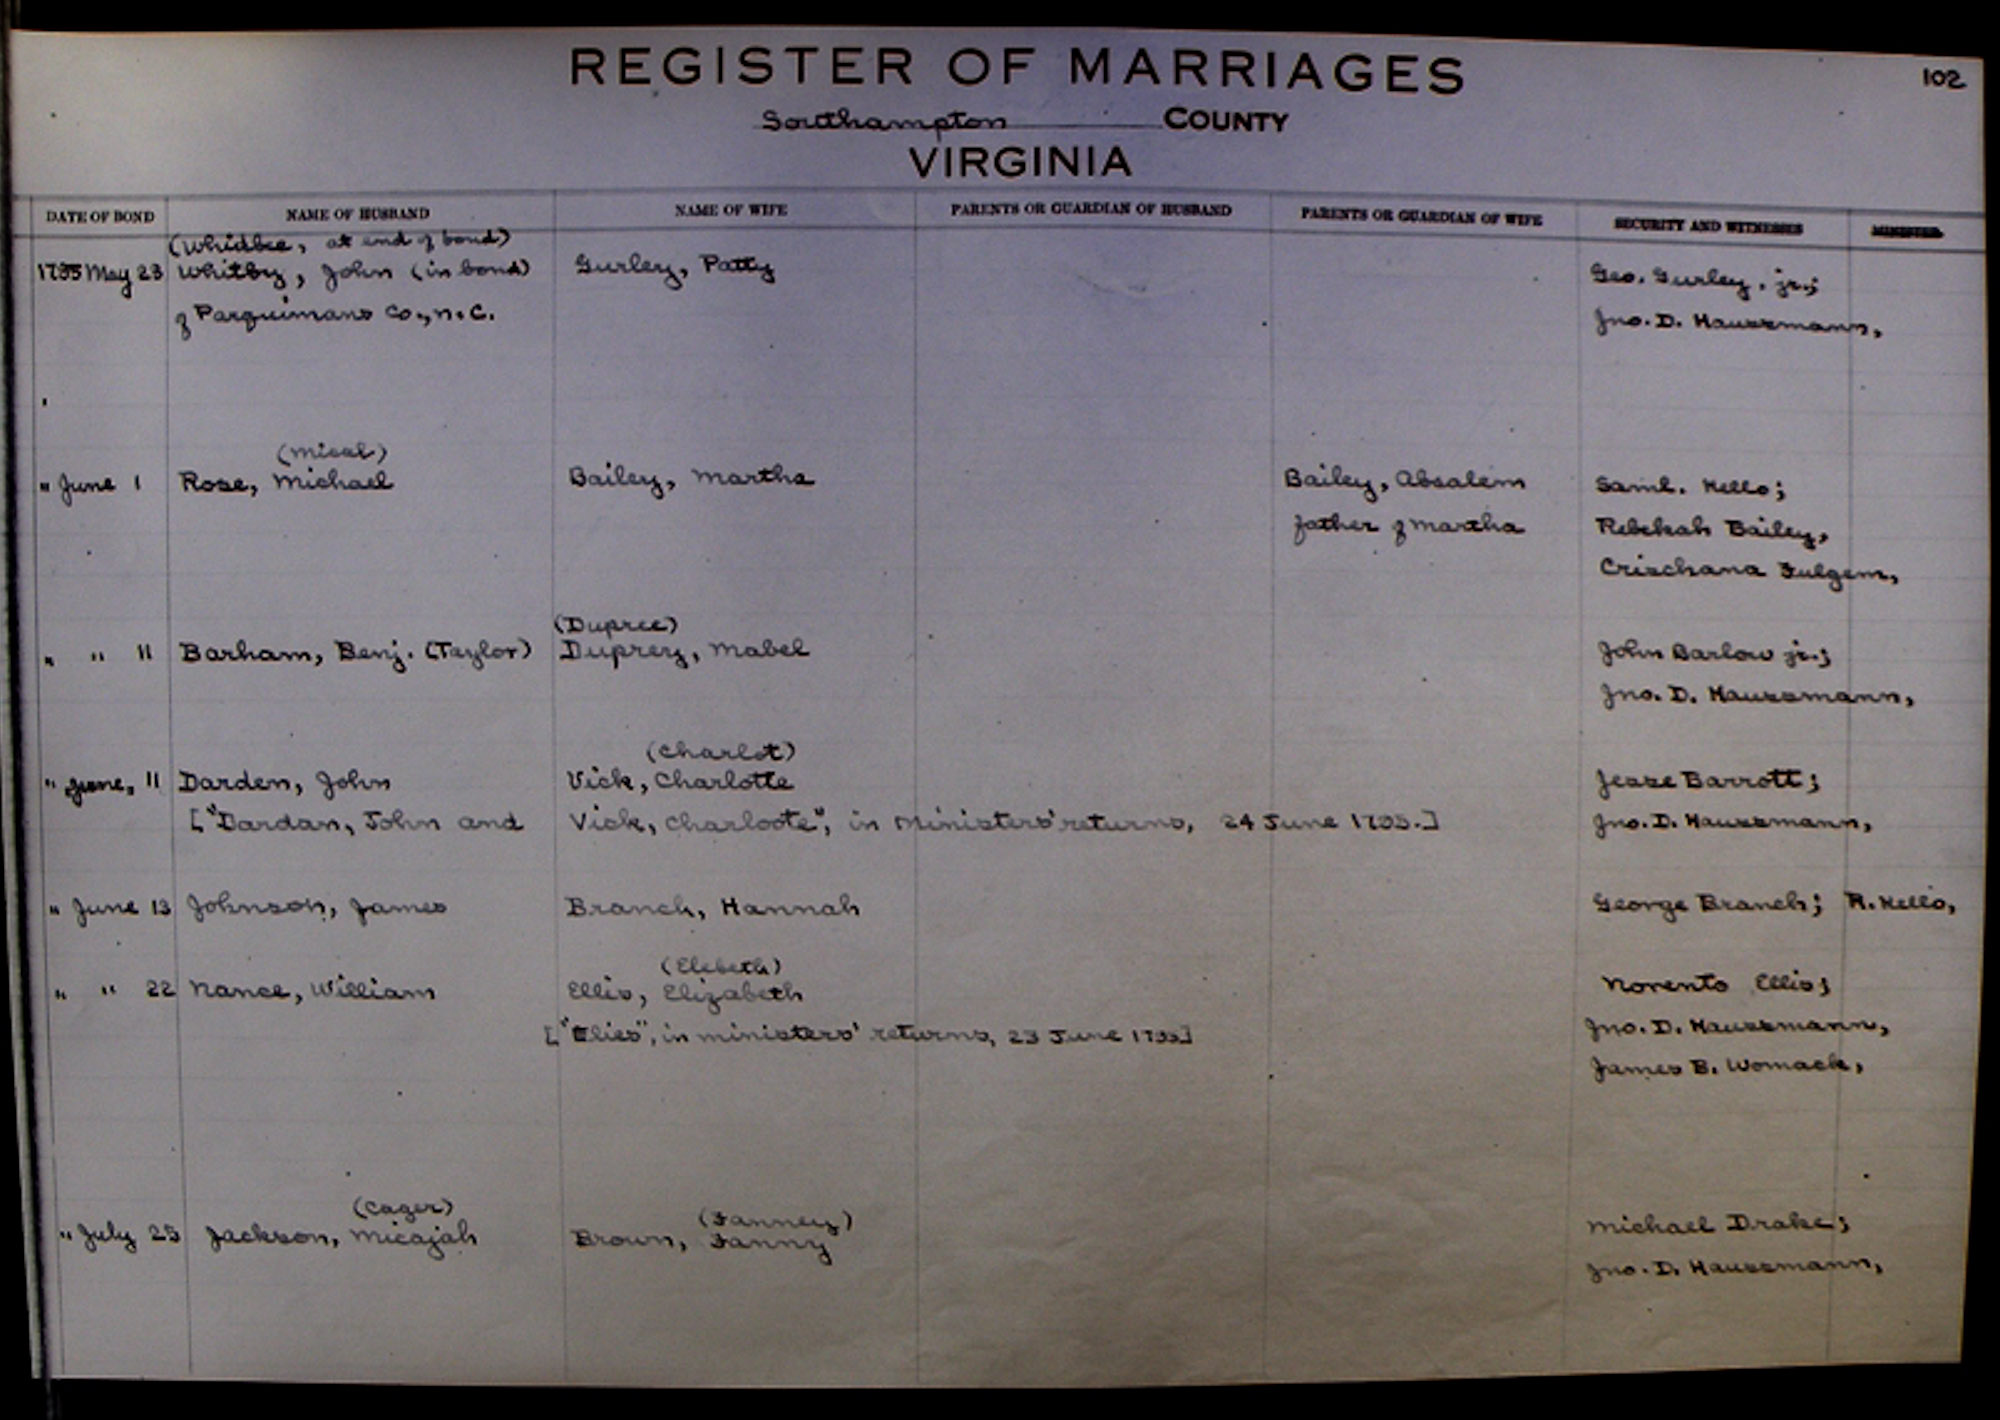 REGISTER OF MARRIAGES
102
Southampton COUNTY
VIRGINIA
DATE OF BOND NAME OF HUSBAND NAME OF WIFE PARENTS OR GUARDIAN OF HUSBAND PARENTS OR GUARDIAN OF WIFE SECURITY AND WITNESSES MINISTER
(Whidbee, at end of bond)
1795 May 23 Whitby, John (in bond) Gurley, Patty Geo. Gurley, jr.;
of Parquimans Co., N.C. Jno. D. Haussmann,
(Mical)
" June 1 Rose, Michael Bailey, Martha Bailey, Absalem Saml. Kello;
father of Martha Rebekah Bailey,
Crischana Fulgem,
(Dupree)
" " 11 Barham, Benj. (Taylor) Duprey, Mabel John Barlow jr.;
Jno. D. Haussmann,
(Charlot)
" June, 11 Darden, John Vick, Charlotte Jesse Barrott;
["Dardan, John and Vick, Charloote", in Ministers' returns, 24 June 1795.] Jno. D. Haussmann,
" June 13 Johnson, James Branch, Hannah George Branch; R. Kello,
(Elebeth)
" " 22 Nance, William Ellis, Elizabeth Norento Ellis;
["Elies", in ministers' returns, 23 June 1795] Jno. D. Haussmann,
James B. Womack,
(Cager) (Fanney)
" July 25 Jackson, Micajah Brown, Fanny Michael Drake;
Jno. D. Haussmann,